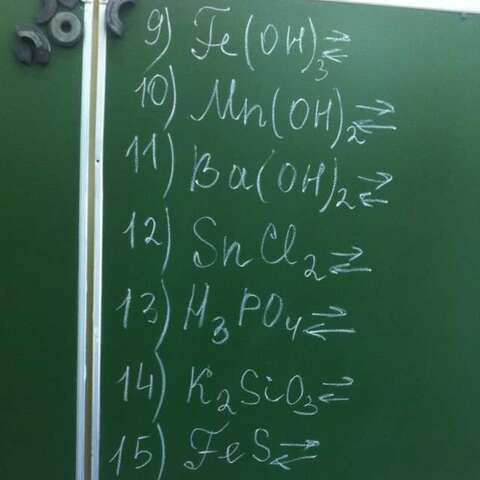 9) Fe(OH)₃⇄
10) Mn(OH)₂⇄
11) Ba(OH)₂⇄
12) SnCl₂⇄
13) H₃PO₄⇄
14) K₂SiO₃⇄
15) FeS⇄